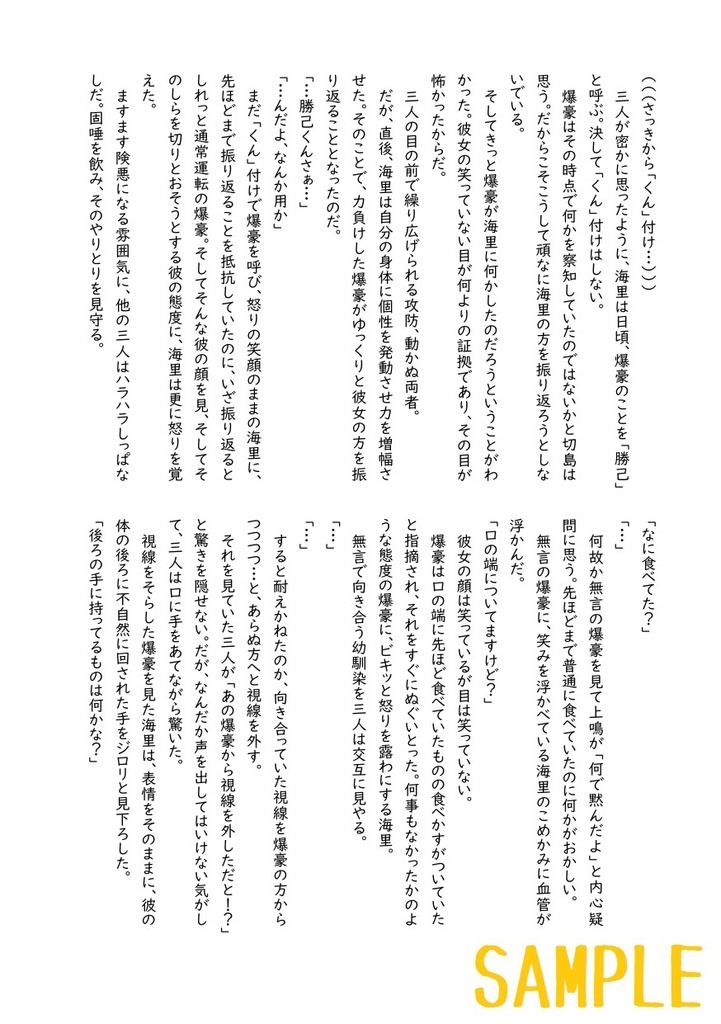 (((さっきから「くん」付け…)))
　三人が密かに思ったように、海里は日頃、爆豪のことを「勝己」
と呼ぶ。決して「くん」付けはしない。
　爆豪はその時点で何かを察知していたのではないかと切島は
思う。だからこそこうして頑なに海里の方を振り返ろうとしな
いでいる。
　そしてきっと爆豪が海里に何かしたのだろうということがわ
かった。彼女の笑っていない目が何よりの証拠であり、その目が
怖かったからだ。
　三人の目の前で繰り広げられる攻防、動かぬ両者。
　だが、直後、海里は自分の身体に個性を発動させ力を増幅さ
せた。そのことで、力負けした爆豪がゆっくりと彼女の方を振
り返ることとなったのだ。
「…勝己くんさぁ…」
「……んだよ、なんか用か」
　まだ「くん」付けで爆豪を呼び、怒りの笑顔のままの海里に、
先ほどまで振り返ることを抵抗していたのに、いざ振り返ると
しれっと通常運転の爆豪。そしてそんな彼の顔を見、そしてそ
のしらを切りとおそうとする彼の態度に、海里は更に怒りを覚
えた。
　ますます険悪になる雰囲気に、他の三人はハラハラしっぱな
しだ。固唾を飲み、そのやりとりを見守る。
「なに食べてた？」
「…」
　何故か無言の爆豪を見て上鳴が「何で黙んだよ」と内心疑
問に思う。先ほどまで普通に食べていたのに何かがおかしい。
　無言の爆豪に、笑みを浮かべている海里のこめかみに血管が
浮かんだ。
「口の端についてますけど？」
　彼女の顔は笑っているが目は笑っていない。
　爆豪は口の端に先ほど食べていたものの食べかすがついていた
と指摘され、それをすぐにぬぐいとった。何事もなかったかのよ
うな態度の爆豪に、ビキッと怒りを露わにする海里。
　無言で向き合う幼馴染を三人は交互に見やる。
「…」
「…」
　すると耐えかねたのか、向き合っていた視線を爆豪の方から
つつつつ…と、あらぬ方へと視線を外す。
　それを見ていた三人が「あの爆豪から視線を外しただと！？」
と驚きを隠せない。だが、なんだか声を出してはいけない気がし
て、三人は口に手をあてながら驚いた。
　視線をそらした爆豪を見た海里は、表情をそのままに、彼の
体の後ろに不自然に回された手をジロリと見下ろした。
「後ろの手に持ってるものは何かな？」
SAMPLE